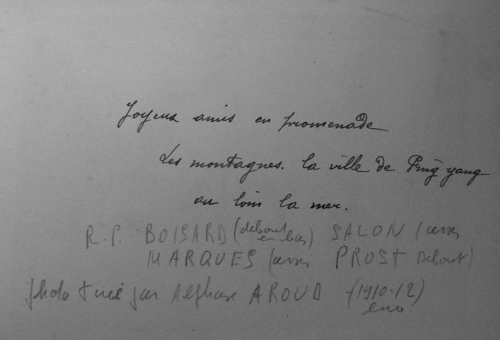 Joyeux amis en promenade
Les montagnes. la ville de Ping yang
au loin la mer.
R.P. BOISARD (debout en bas) SALON (assis
MARQUES (assis PROST debout)
photo tirée par Alphonse AROUD (1910-12)
env